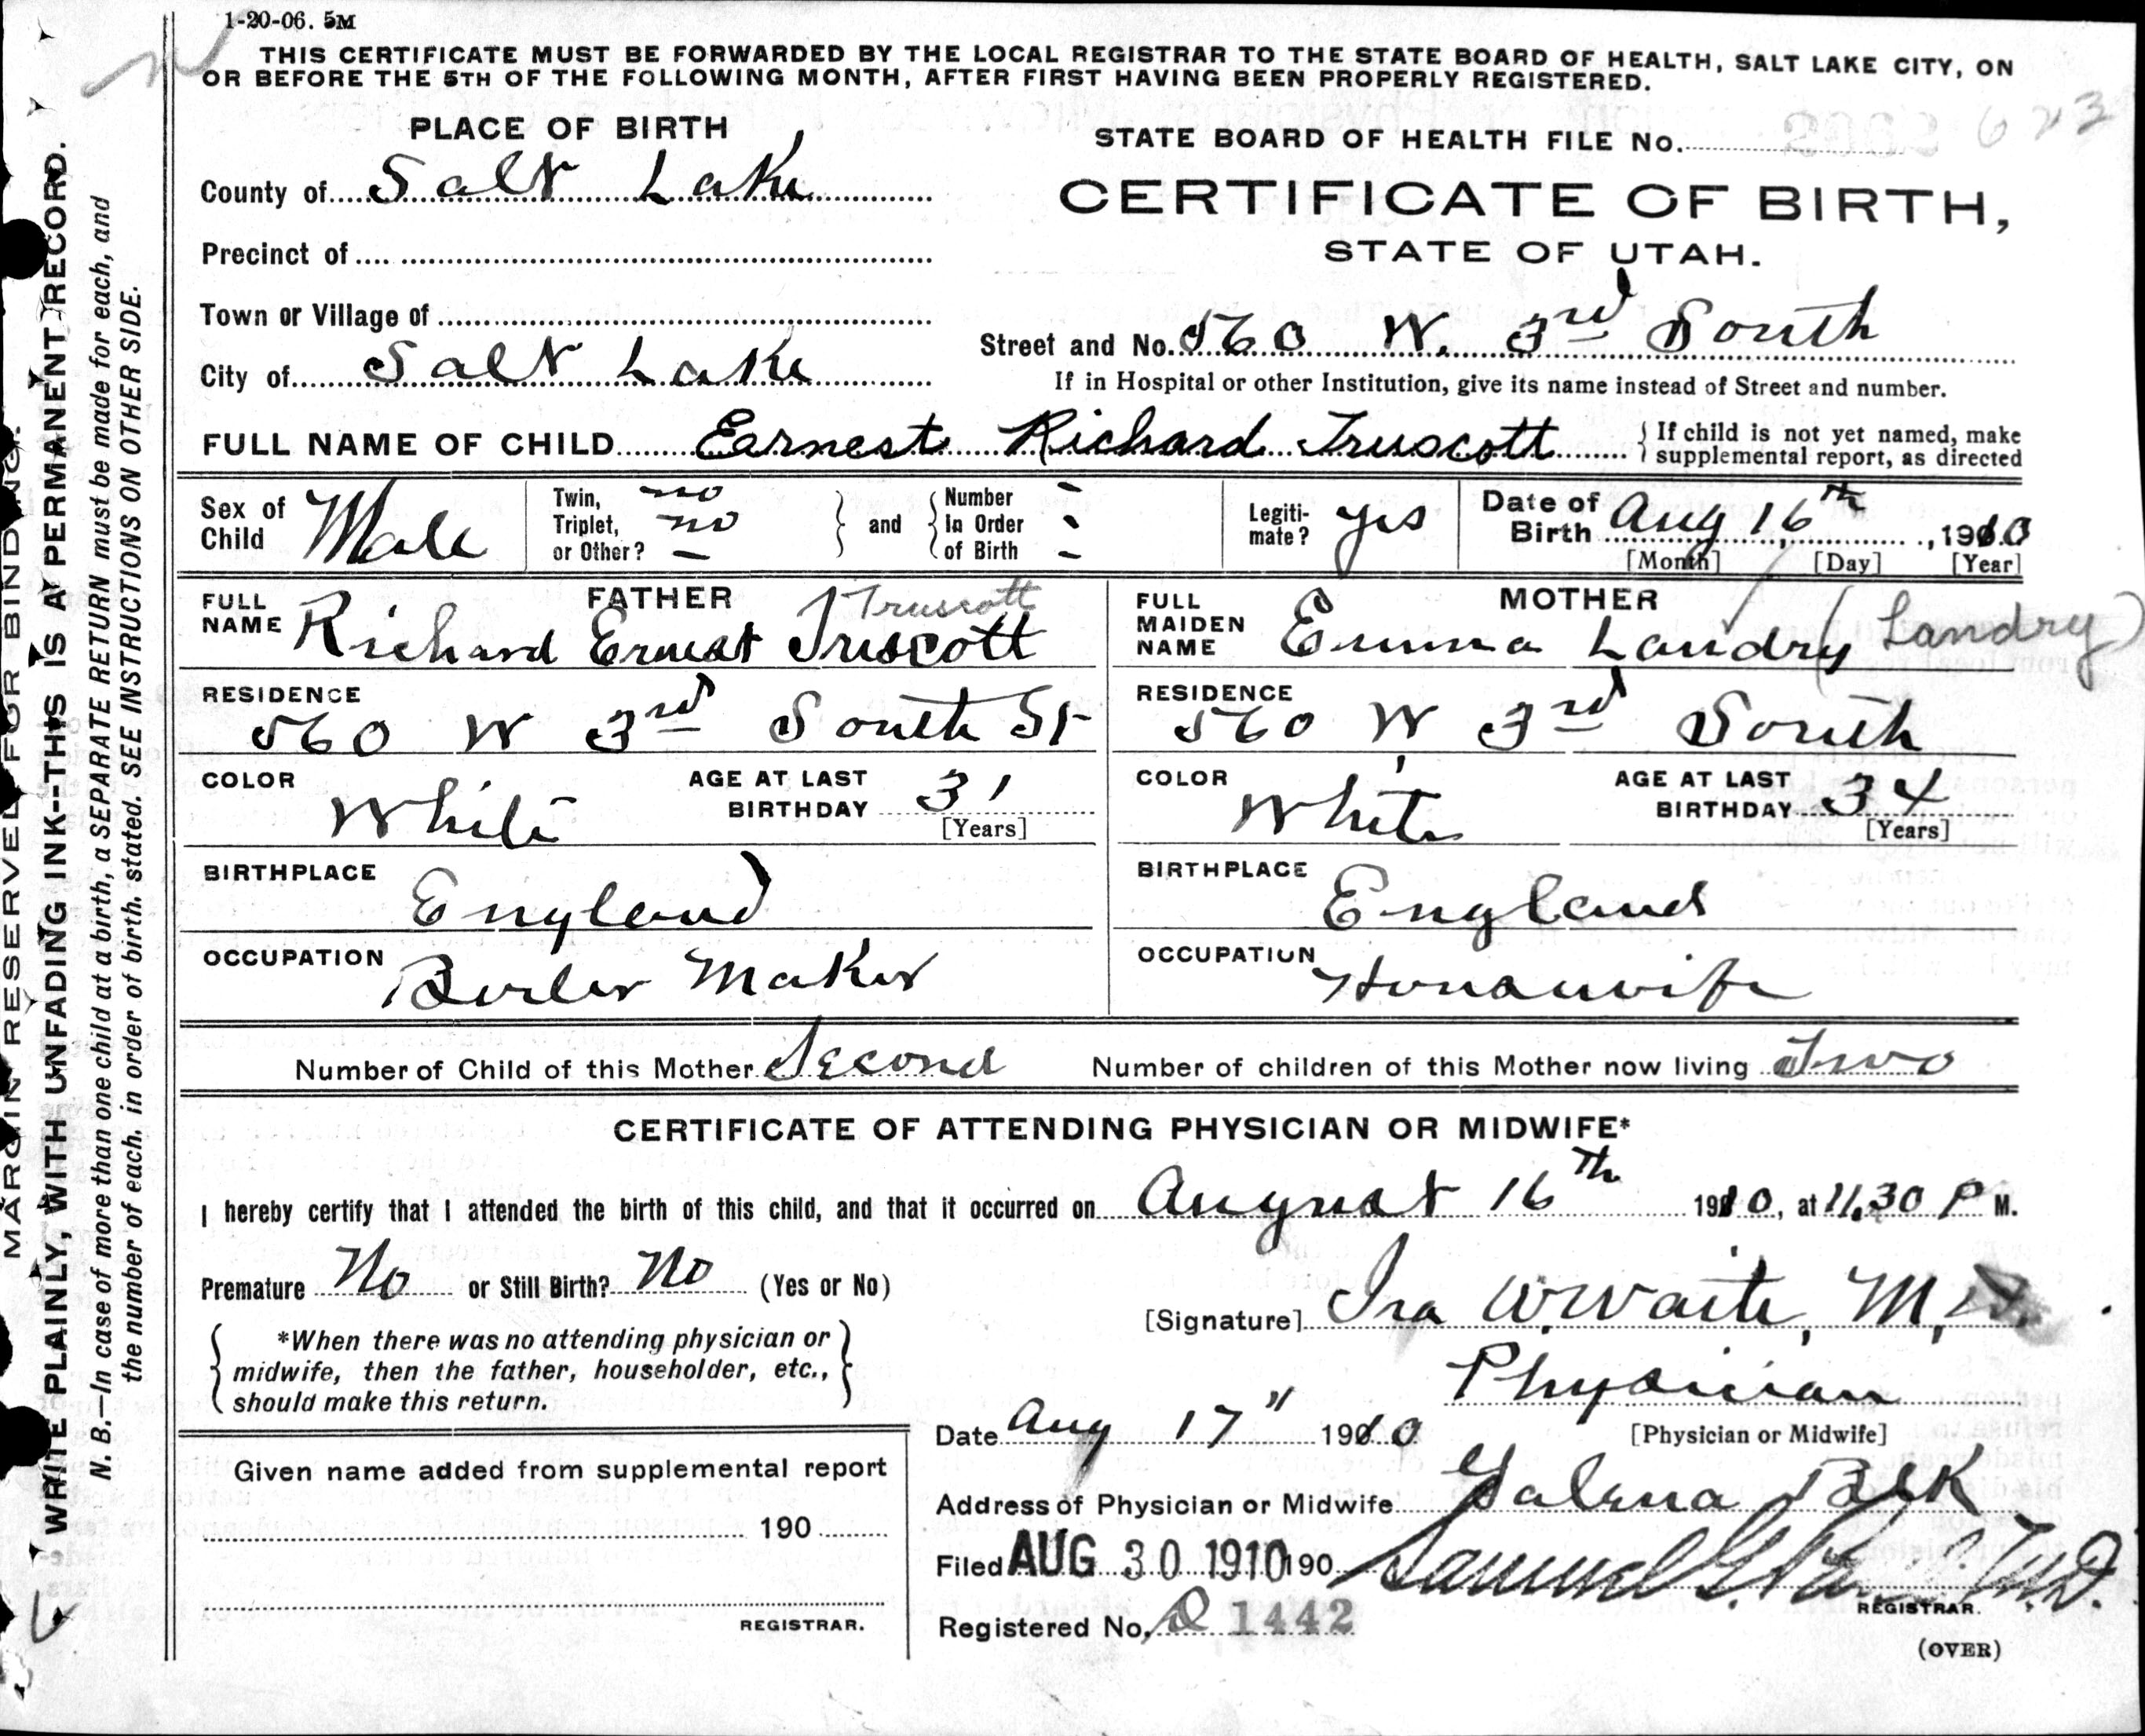 1-20-06. 5M
THIS CERTIFICATE MUST BE FORWARDED BY THE LOCAL REGISTRAR TO THE STATE BOARD OF HEALTH, SALT LAKE CITY, ON
OR BEFORE THE 5TH OF THE FOLLOWING MONTH, AFTER FIRST HAVING BEEN PROPERLY REGISTERED.
PLACE OF BIRTH
STATE BOARD OF HEALTH FILE No. 623
County of Salt Lake
CERTIFICATE OF BIRTH,
STATE OF UTAH.
Precinct of
Town or Village of
Street and No. 560 W. 3rd South
City of Salt Lake
If in Hospital or other Institution, give its name instead of Street and number.
FULL NAME OF CHILD Earnest Richard Truscott { If child is not yet named, make
supplemental report, as directed
Sex of
Child Male
Twin, no
Triplet, no
or Other? —
} and { Number -
In Order -
of Birth -
Legiti-
mate? yes
Date of
Birth Aug 16th, 1910
[Month] [Day] [Year]
FATHER
FULL
NAME Richard Ernest Truscott Truscott
MOTHER
FULL
MAIDEN
NAME Emma Landry (Landry)
RESIDENCE
560 W 3rd South St
RESIDENCE
560 W 3rd South
COLOR White
AGE AT LAST
BIRTHDAY 31
[Years]
COLOR White
AGE AT LAST
BIRTHDAY 34
[Years]
BIRTHPLACE England
BIRTHPLACE England
OCCUPATION Boiler Maker
OCCUPATION Housewife
Number of Child of this Mother Second Number of children of this Mother now living Two
CERTIFICATE OF ATTENDING PHYSICIAN OR MIDWIFE*
I hereby certify that I attended the birth of this child, and that it occurred on August 16th 1910, at 11.30 P M.
Premature No or Still Birth? No (Yes or No)
[Signature] Ira W. Waite, M.D.
Physician
[Physician or Midwife]
{ *When there was no attending physician or
midwife, then the father, householder, etc.,
should make this return. }
Date Aug 17" 1910
Given name added from supplemental report
190
REGISTRAR.
Address of Physician or Midwife Galena Blk
Filed AUG 30 1910 190 Samuel G. M.D.
REGISTRAR.
Registered No. D 1442
(OVER)
MARGIN RESERVED FOR BINDING.
WRITE PLAINLY, WITH UNFADING INK--THIS IS A PERMANENT RECORD.
N. B.—In case of more than one child at a birth, a SEPARATE RETURN must be made for each, and
the number of each, in order of birth, stated. SEE INSTRUCTIONS ON OTHER SIDE.